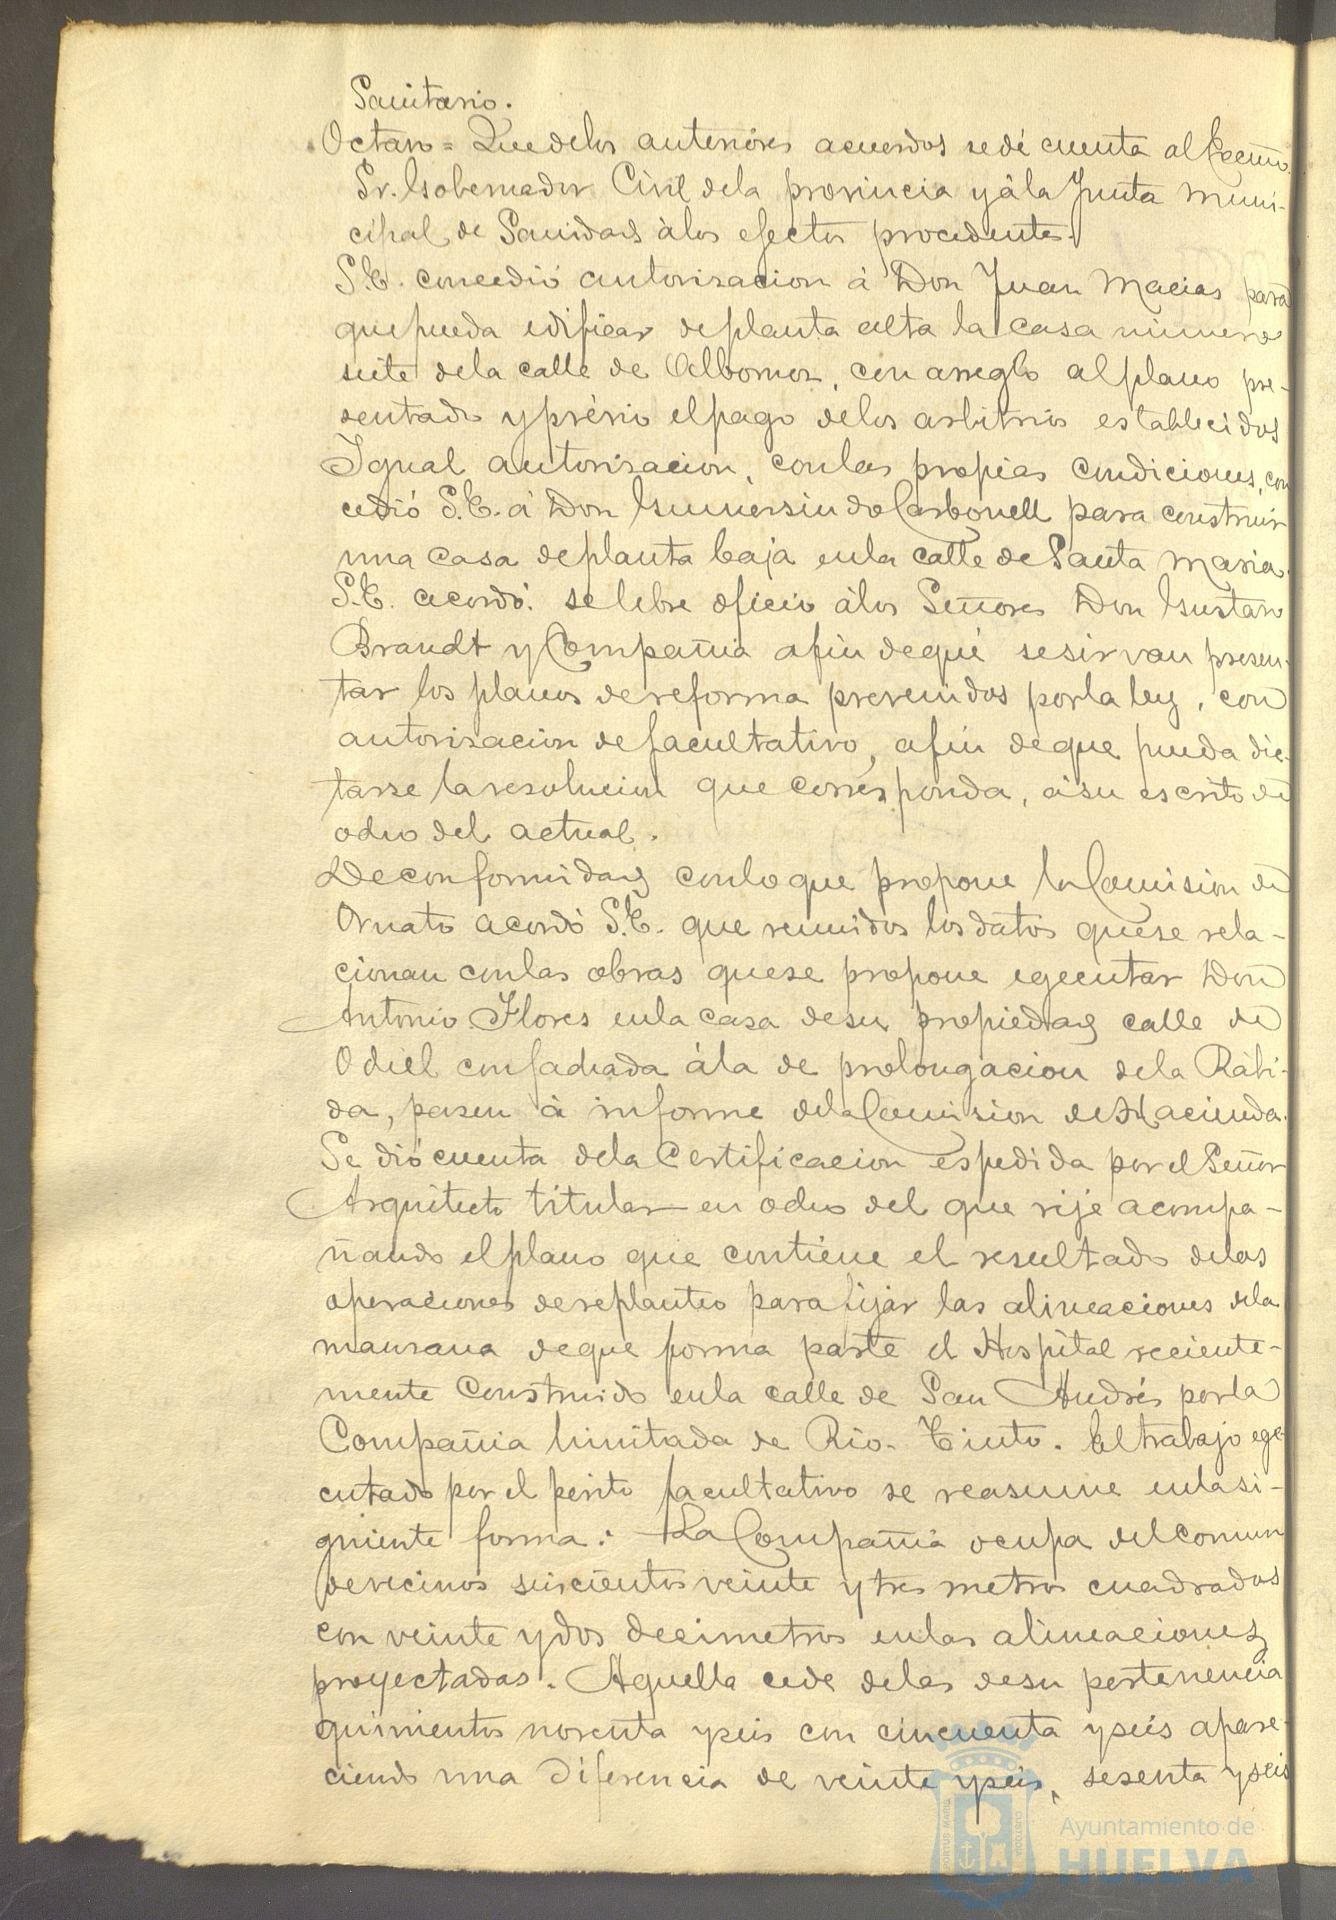 Sanitario.
Octavo = Que de los anteriores acuerdos se dé cuenta al Excmo.
Sr. Gobernador Civil de la provincia y á la Junta muni-
cipal de Sanidad á los efectos procedentes.
S.E. concedió autorizacion á Don Juan Macias para
que pueda edificar de planta alta la casa número
siete de la calle de Albornoz, con arreglo al plano pre-
sentado y prévio el pago de los arbitrios establecidos
Igual autorizacion, con las propias condiciones, con
cedió S.E. á Don Gumersindo Carbonell para construir
una casa de planta baja en la calle de Santa Maria.
S.E. acordó: se libre oficio á los Señores Don Gustavo
Brandt y Compañia a fin de que se sirvan presen-
tar los planos de reforma prevenidos por la ley, con
autorizacion de facultativo, a fin de que pueda dic-
tarse la resolucion que corresponda, á su escrito de
ocho del actual.
De conformidad con lo que propone la Comision de
Ornato acordó S.E. que reunidos los datos que se rela-
cionan con las obras que se propone egecutar Don
Antonio Flores en la casa de su propiedad calle de
Odiel con fachada á la de prolongacion de la Rábi-
da, pasen á informe de la Comision de Hacienda.
Se dió cuenta de la Certificacion espedida por el Señor
Arquitecto titular en ocho del que rije acompa-
ñando el plano que contiene el resultado de las
operaciones de replanteo para fijar las alineaciones de la
manzana de que forma parte el Hospital reciente-
mente Construido en la calle de San Andrés por la
Compañia limitada de Rio-Tinto. El trabajo ege-
cutado por el perito facultativo se reasume en la si-
guiente forma: La Compañia ocupa del comun
de vecinos seiscientos veinte y tres metros cuadrados
con veinte y dos decimetros en las alineaciones
proyectadas. Aquella cede de las de su pertenencia
quinientos noventa y seis con cincuenta y seis apare-
ciendo una diferencia de veinte y seis, sesenta y seis
Ayuntamiento de
HUELVA